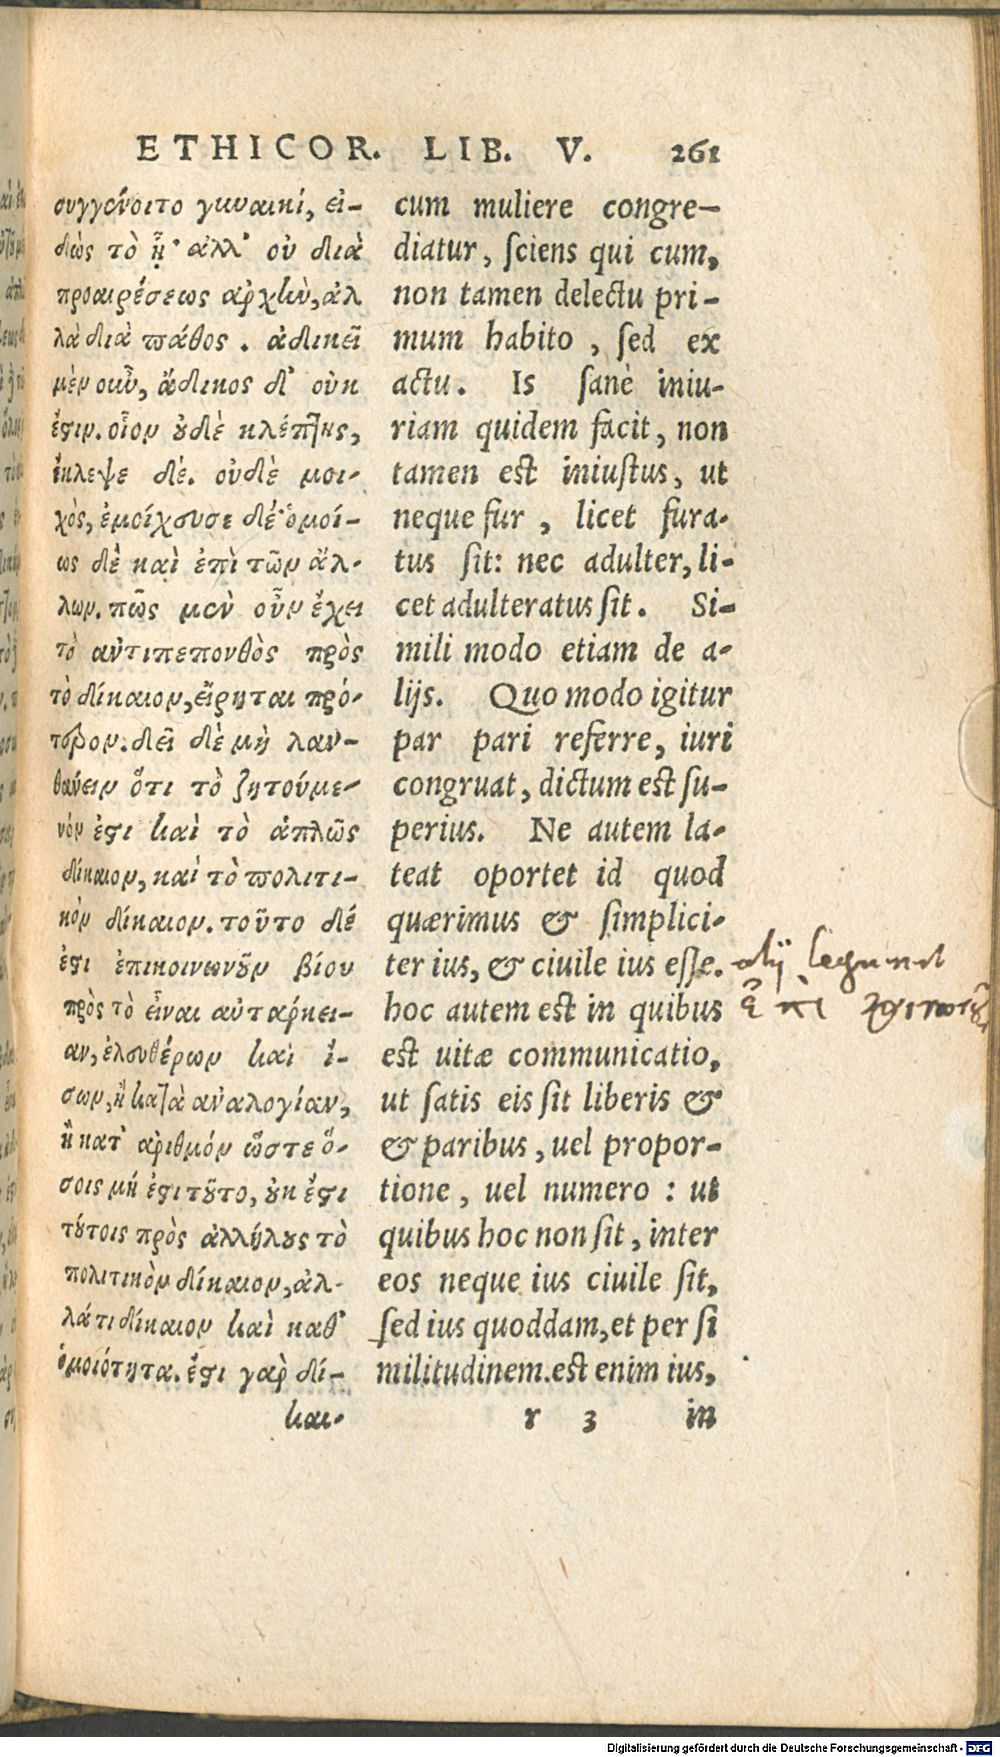 ETHICOR. LIB. V. 261
συγγένοιτο γυναικί, εἰ-
δὼς τὸ ᾗ· ἀλλ' οὐ διὰ
προαιρέσεως ἀρχὴν, ἀλ
λὰ διὰ πάθος. ἀδικεῖ
μὲν οὖν, ἄδικος δ' οὐκ
ἔστιν. οἷον οὐδὲ κλέπτης,
ἔκλεψε δέ. οὐδὲ μοι-
χὸς, ἐμοίχευσε δέ· ὁμοί-
ως δὲ καὶ ἐπὶ τῶν ἄλ-
λων. πῶς μὲν οὖν ἔχει
τὸ ἀντιπεπονθὸς πρὸς
τὸ δίκαιον, εἴρηται πρό-
τερον. δεῖ δὲ μὴ λαν-
θάνειν ὅτι τὸ ζητούμε-
νόν ἐστι καὶ τὸ ἁπλῶς
δίκαιον, καὶ τὸ πολιτι-
κὸν δίκαιον. τοῦτο δέ
ἐστι ἐπικοινωνοῦν βίου
πρὸς τὸ εἶναι αὐτάρκει-
αν, ἐλευθέρων καὶ ἴ-
σων, ἢ κατὰ ἀναλογίαν,
ἢ κατ' ἀριθμόν ὥστε ὅ-
σοις μή ἐστι τοῦτο, οὐκ ἔστι
τούτοις πρὸς ἀλλήλους τὸ
πολιτικὸν δίκαιον, ἀλ-
λά τι δίκαιον καὶ καθ'
ὁμοιότητα. ἔστι γὰρ δί-
και-
cum muliere congre-
diatur, ſciens qui cum,
non tamen delectu pri-
mum habito, ſed ex
actu. Is ſanè iniu-
riam quidem facit, non
tamen est iniuſtus, ut
neque fur, licet fura-
tus ſit: nec adulter, li-
cet adulteratus ſit. Si-
mili modo etiam de a-
lijs. Quo modo igitur
par pari referre, iuri
congruat, dictum est ſu-
perius. Ne autem la-
teat oportet id quod
quærimus & ſimplici-
ter ius, & ciuile ius eſſe.
hoc autem est in quibus
est uitæ communicatio,
ut ſatis eis ſit liberis &
& paribus, uel propor-
tione, uel numero: ut
quibus hoc non ſit, inter
eos neque ius ciuile ſit,
ſed ius quoddam, et per ſi
militudinem. est enim ius,
r 3 in
alij legunt
ἐπὶ κοινωνῶν
Digitalisierung gefördert durch die Deutsche Forschungsgemeinschaft - DFG